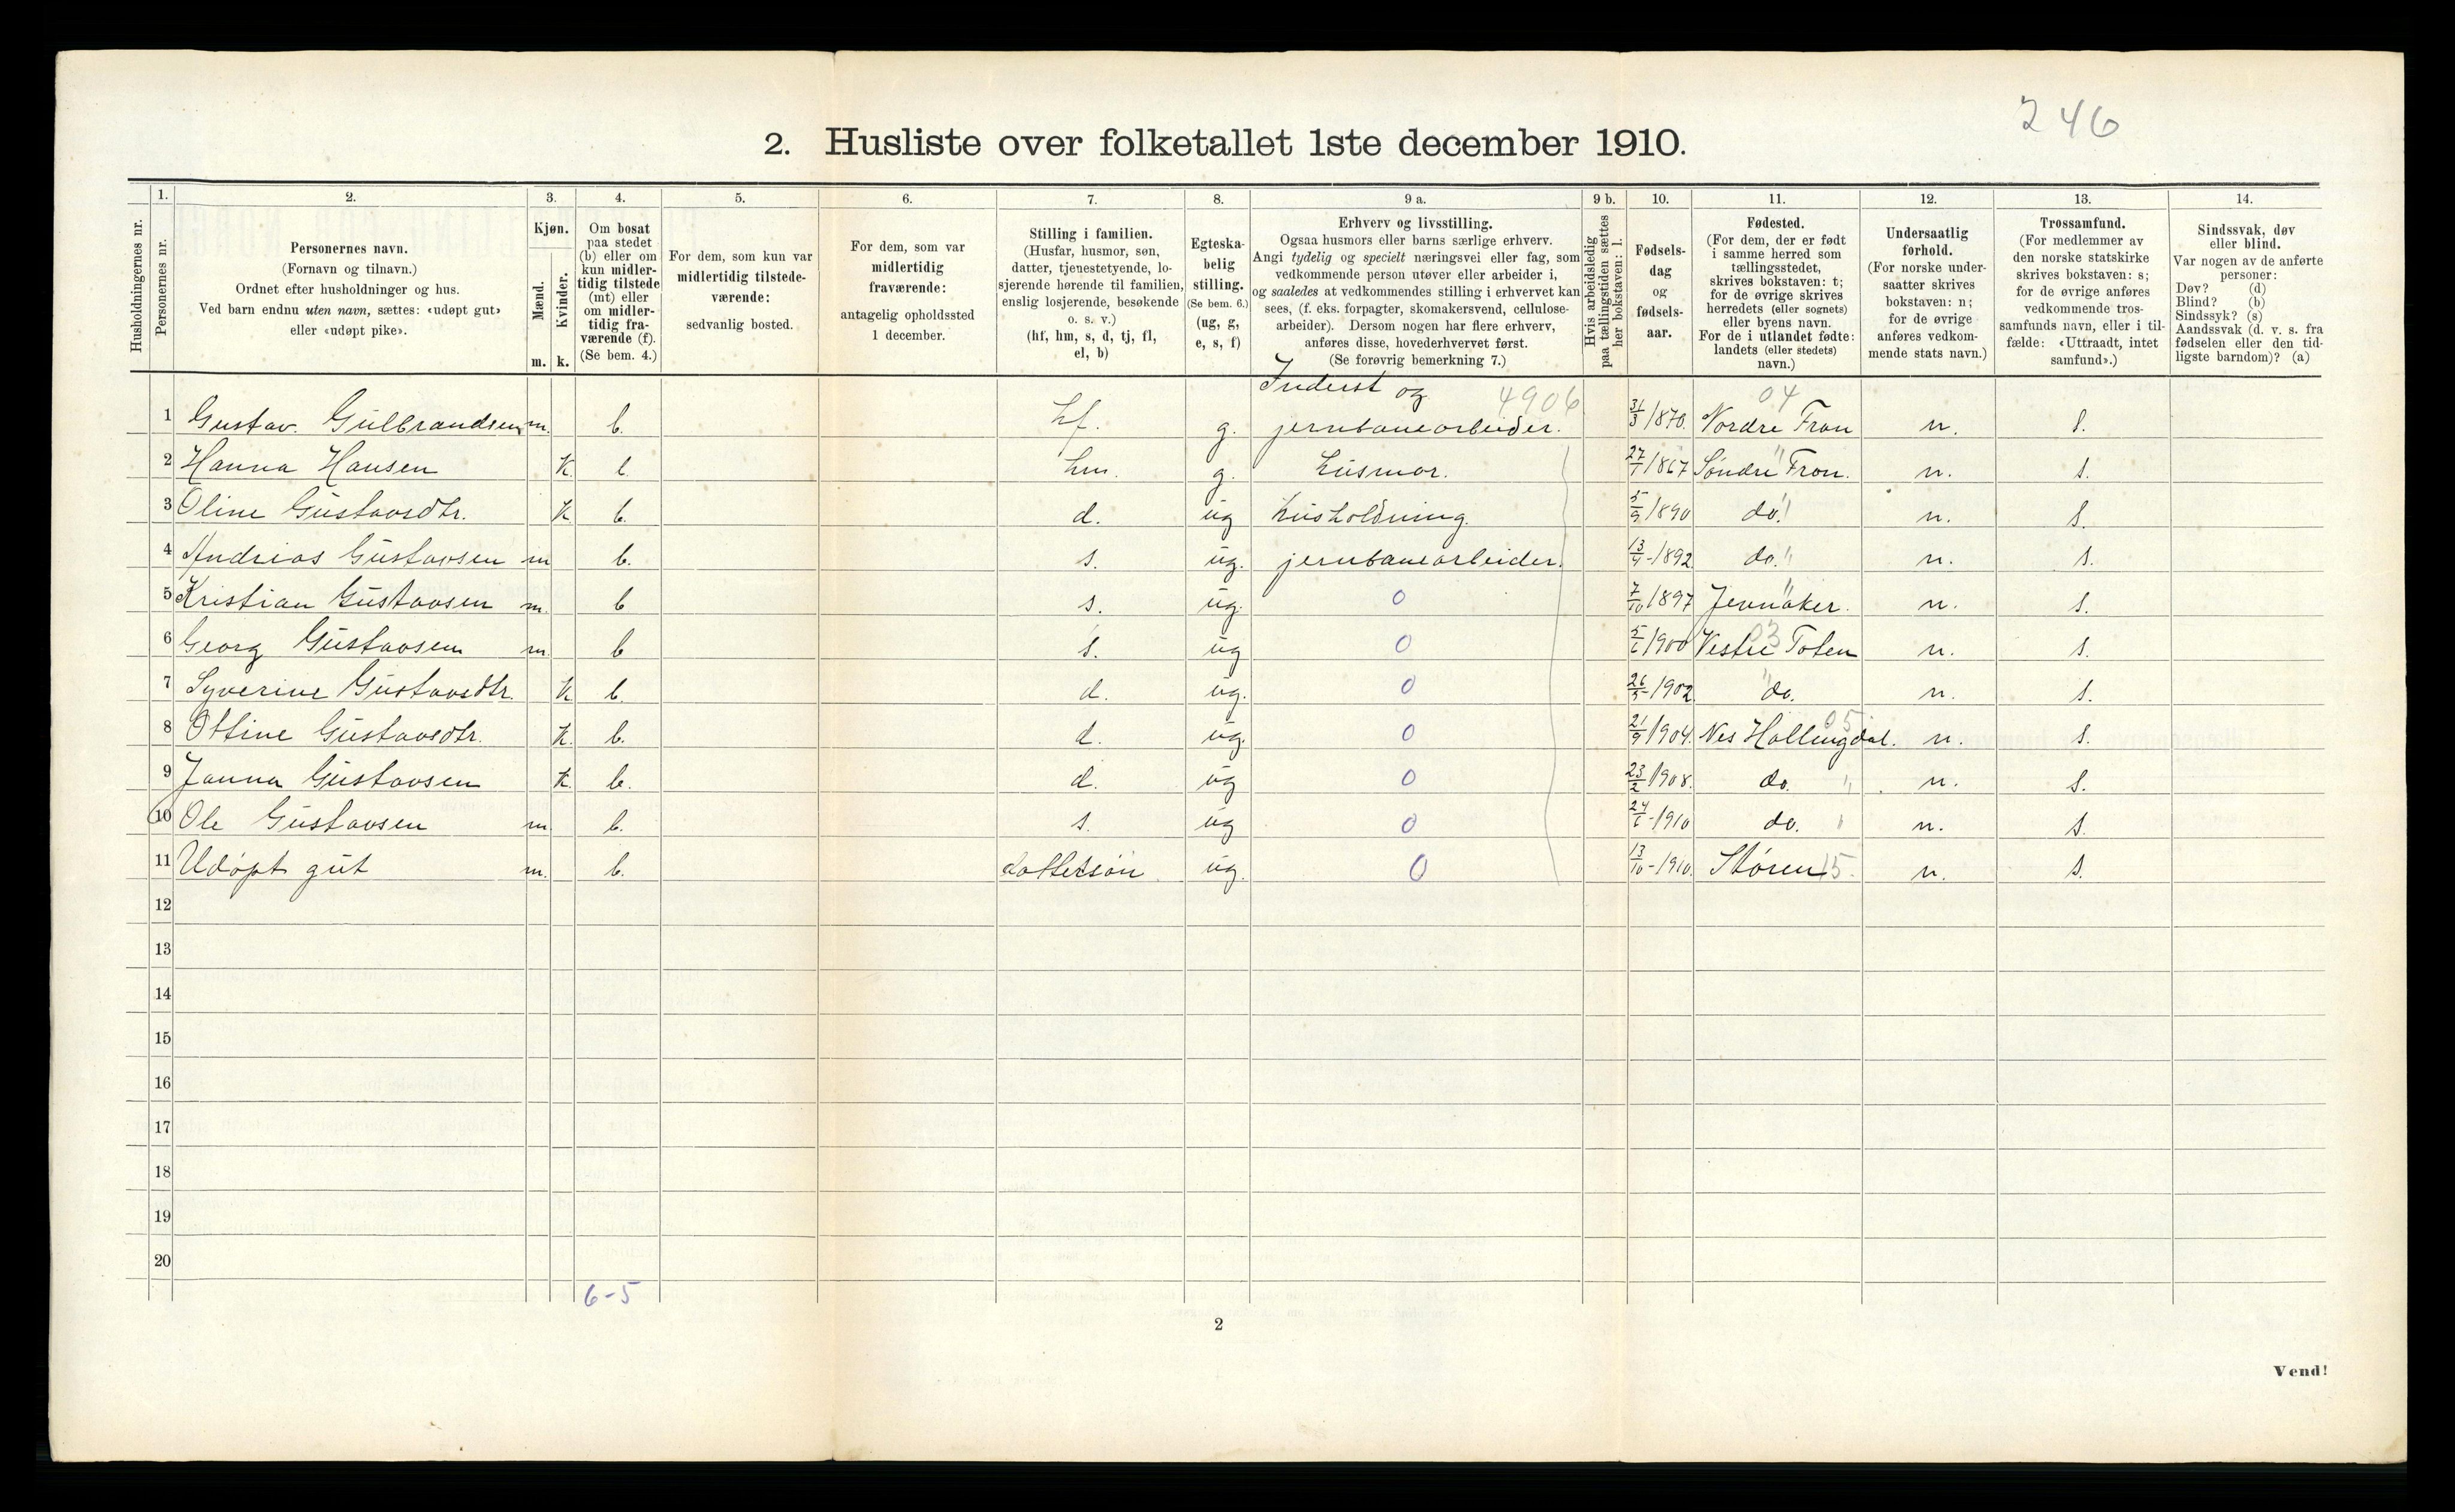 246
2. Husliste over folketallet 1ste december 1910.
Husholdningernes nr.
1.
Personernes nr.
2.
Personernes navn.
(Fornavn og tilnavn.)
Ordnet efter husholdninger og hus.
Ved barn endnu uten navn, sættes: «udøpt gut»
eller «udøpt pike».
3.
Kjøn.
Mænd.
Kvinder.
m. k.
4.
Om bosat
paa stedet
(b) eller om
kun midler-
tidig tilstede
(mt) eller
om midler-
tidig fra-
værende (f).
(Se bem. 4.)
5.
For dem, som kun var
midlertidig tilstede-
værende:
sedvanlig bosted.
6.
For dem, som var
midlertidig
fraværende:
antagelig opholdssted
1 december.
7.
Stilling i familien.
(Husfar, husmor, søn,
datter, tjenestetyende, lo-
sjerende hørende til familien,
enslig losjerende, besøkende
o. s. v.)
(hf, hm, s, d, tj, fl,
el, b)
8.
Egteska-
belig
stilling.
(Se bem. 6.)
(ug, g,
e, s, f)
9 a.
Erhverv og livsstilling.
Ogsaa husmors eller barns særlige erhverv.
Angi tydelig og specielt næringsvei eller fag, som
vedkommende person utøver eller arbeider i,
og saaledes at vedkommendes stilling i erhvervet kan
sees, (f. eks. forpagter, skomakersvend, cellulose-
arbeider). Dersom nogen har flere erhverv,
anføres disse, hovederhvervet først.
(Se forøvrig bemerkning 7.)
9 b.
Hvis arbeidsledig
paa tællingstiden sættes
her bokstaven: l.
10.
Fødsels-
dag
og
fødsels-
aar.
11.
Fødested.
(For dem, der er født
i samme herred som
tællingsstedet,
skrives bokstaven: t;
for de øvrige skrives
herredets (eller sognets)
eller byens navn.
For de i utlandet fødte:
landets (eller stedets)
navn.)
12.
Undersaatlig
forhold.
(For norske under-
saatter skrives
bokstaven: n;
for de øvrige
anføres vedkom-
mende stats navn.)
13.
Trossamfund.
(For medlemmer av
den norske statskirke
skrives bokstaven: s;
for de øvrige anføres
vedkommende tros-
samfunds navn, eller i til-
fælde: «Uttraadt, intet
samfund».)
14.
Sindssvak, døv
eller blind.
Var nogen av de anførte
personer:
Døv? (d)
Blind? (b)
Sindssyk? (s)
Aandssvak (d. v. s. fra
fødselen eller den tid-
ligste barndom)? (a)
Inderst og 4906 04
1 Gustav. Gulbrandsen m. b. hf. g. jernbanearbeider. 31/3 1870. Nordre Fron n. s.
2 Hanna Hansen k b hm. g. husmor. 27/1 1867 Søndre Fron. " n. s.
3 Oline Gustavsdtr. k b. d. ug husholdning. 5/9 1890 do. " n. s.
4 Andreas Gustavsen m b. s. ug. jernbanearbeider. 13/4-1892 do. " n. s.
5 Kristian Gustavsen m. b s. ug. 0 7/10 1897 Jevnaker. " n. s.
6 Georg Gustavsen m. b s. ug 0 5/6 1900 Vestre Toten 03 n. s.
7 Syverine Gustavsdtr. k b. d. ug. 0 26/5-1902 do. " n. s.
8 Ottine Gustavsdtr. k. b. d. ug. 0 21/9 1904. Nes Hallingdal. 05 n. s.
9 Janna Gustavsen k. b. d. ug 0 23/2 1908. do. " n. s.
10 Ole Gustavsen m b. s. ug 0 24/6-1910 do. " n. s.
11 Udøpt gut m. b. dattersøn. ug. 0 13/10-1910. Støren 15. n. s.
12
13
14
15
16
17
18
19
20
6-5
2
Vend!